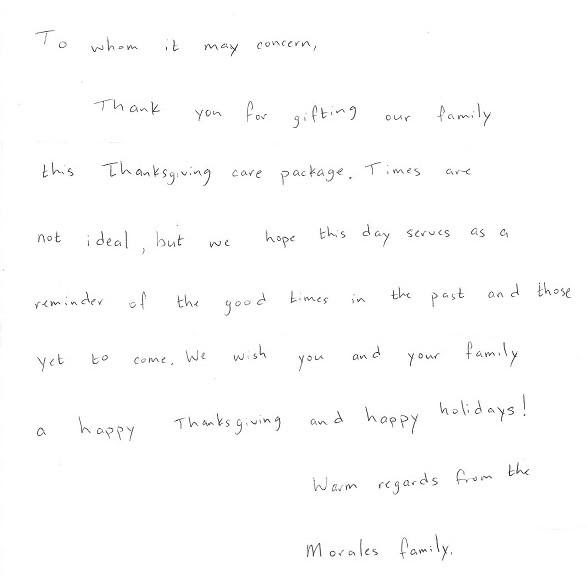 To whom it may concern,
Thank you for gifting our family
this Thanksgiving care package. Times are
not ideal, but we hope this day serves as a
reminder of the good times in the past and those
yet to come. We wish you and your family
a happy Thanksgiving and happy holidays!
Warm regards from the
Morales family.